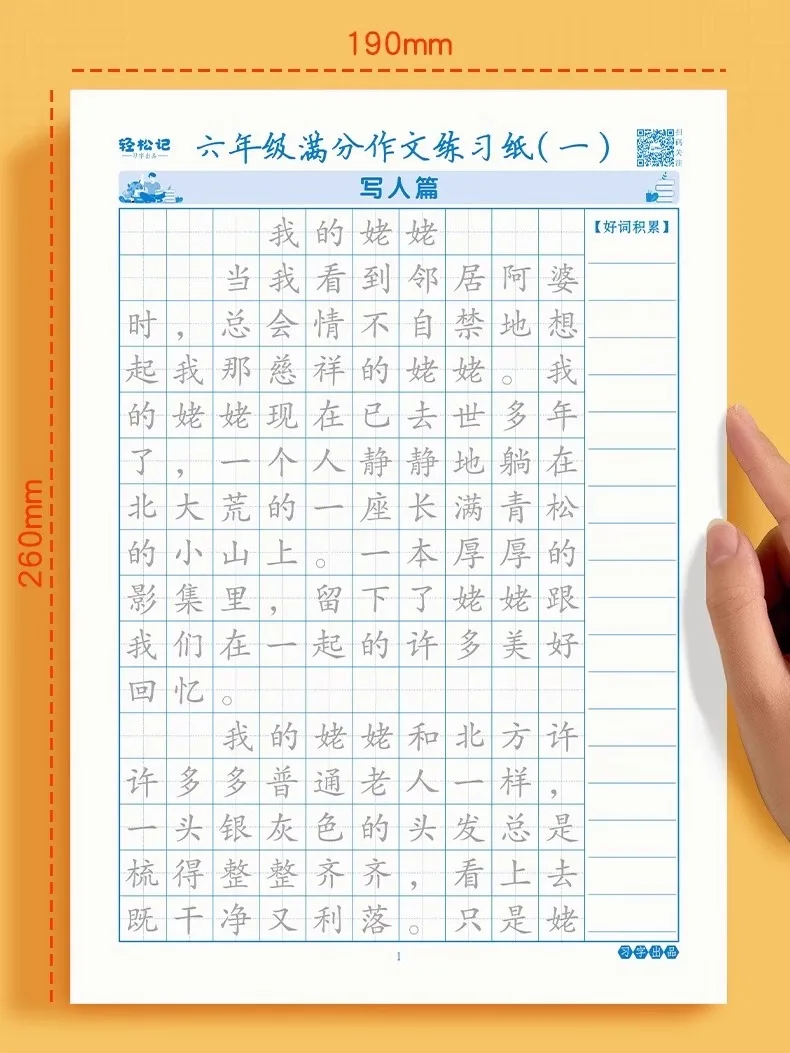 190mm
260mm
轻松记
习字出品
六年级满分作文练习纸(一)
扫码关注
写人篇
【好词积累】
我的姥姥
当我看到邻居阿婆
时，总会情不自禁地想
起我那慈祥的姥姥。我
的姥姥现在已去世多年
了，一个人静静地躺在
北大荒的一座长满青松
的小山上。一本厚厚的
影集里，留下了姥姥跟
我们在一起的许多美好
回忆。
我的姥姥和北方许
许多多普通老人一样，
一头银灰色的头发总是
梳得整整齐齐，看上去
既干净又利落。只是姥
1
习字出品